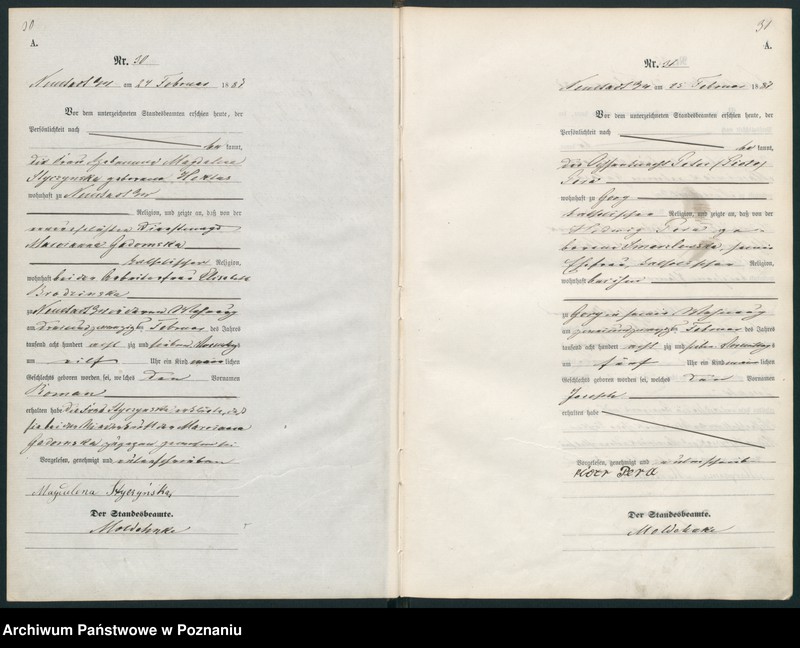 30
A.
Nr. 30
Neustadt a/W am 24 Februar 1887
Vor dem unterzeichneten Standesbeamten erschien heute, der
Persönlichkeit nach
be kannt,
die Frau Hebamme Magdalena
Styczynska geborene
wohnhaft zu Neustadt a/W
Religion, und zeigte an, daß von der
unverehelichten Dienstmagd
Marcianna Gadomska
katholischer Religion,
wohnhaft bei der Arbeiterfrau Elisabeth
Brodzinska
zu Neustadt a/W in deren Wohnung
am dreiundzwanzigsten Februar des Jahres
tausend acht hundert acht zig und sieben Vormittags
um elf Uhr ein Kind männ lichen
Geschlechts geboren worden sei, welches den Vornamen
Roman
erhalten habe. Die Frau Styczynska erklärte, daß
sie bei der Niederkunft der Marcianna
Gadomska zugegen gewesen sei
Vorgelesen, genehmigt und unterschrieben
Magdalena Styczyńska
Der Standesbeamte.
Moldehnke
31
A.
Nr. 31
Neustadt a/W am 25 Februar 1887
Vor dem unterzeichneten Standesbeamten erschien heute, der
Persönlichkeit nach
be kannt,
der Ochsenknecht Peter (Piotr)
Pera
wohnhaft zu
katholischer Religion, und zeigte an, daß von der
Hedwig Pera ge-
borenen seiner
Ehefrau, katholischer Religion,
wohnhaft bei ihm
zu in seiner Wohnung
am zweiundzwanzigsten Februar des Jahres
tausend acht hundert acht zig und sieben
um fünf Uhr ein Kind männ lichen
Geschlechts geboren worden sei, welches den Vornamen
Joseph
erhalten habe
Vorgelesen, genehmigt und unterschrieben
Piotr Pera
Der Standesbeamte.
Moldehnke
Archiwum Państwowe w Poznaniu